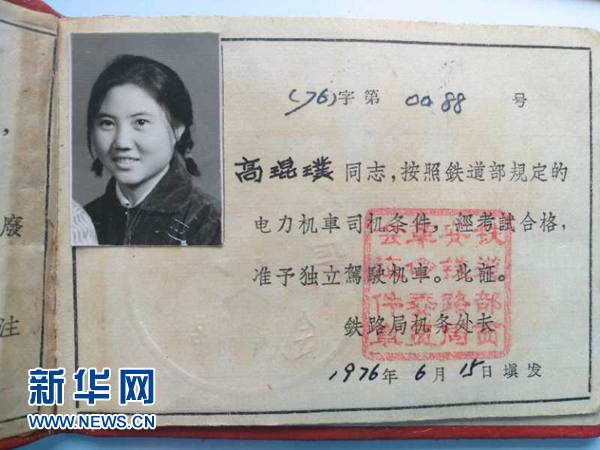 (76)字第 0088 号
高琨璞 同志，按照鉄道部規定的
电力机車司机条件，經考試合格，
准予独立駕駛机車。此証。
鉄路局机务处长
1976年 6月 15日填发
廢
注
新华网
WWW.NEWS.CN